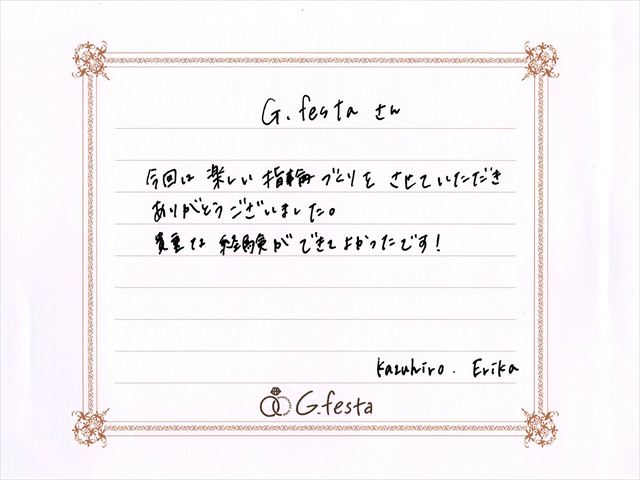 G.festa さん
今回は 楽しい 指輪 づくりを させていただき
ありがとうございました。
貴重な 経験ができてよかったです!
Kazuhiro. Erika
G.festa